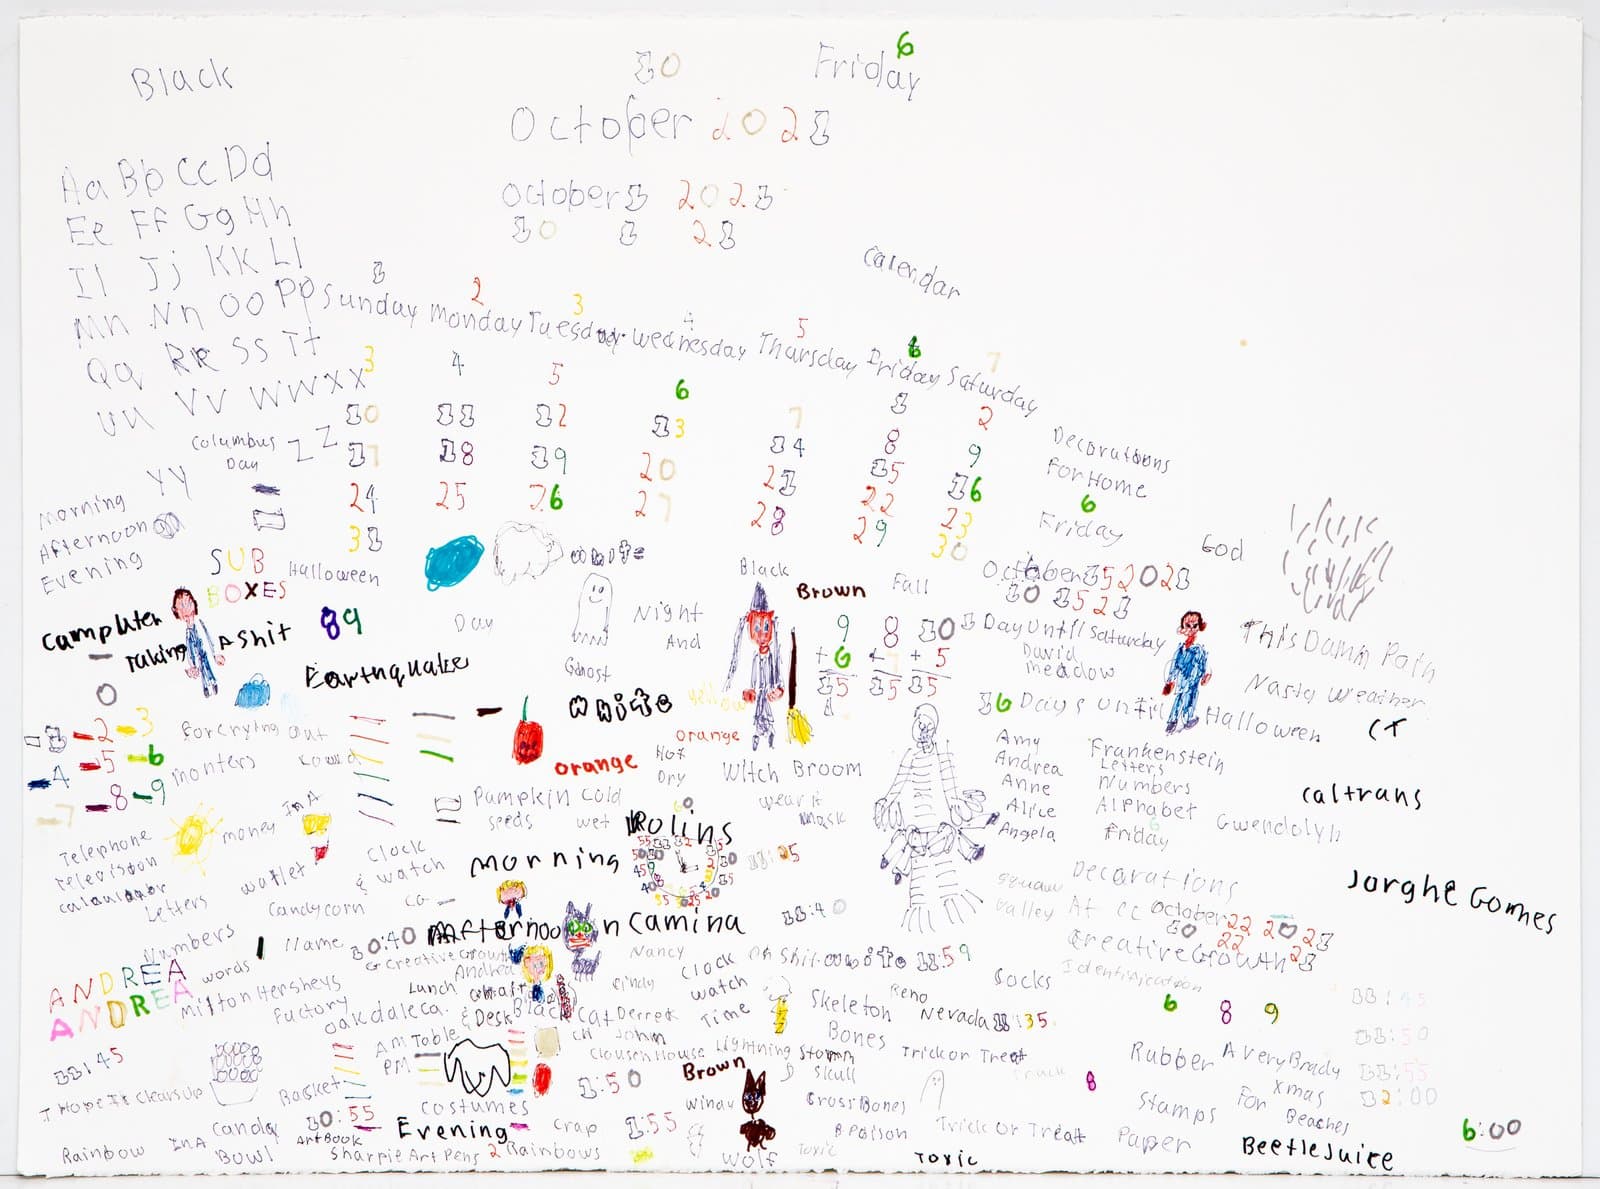 Black
10
6
Friday
October 2021
October 1 2021
10 1 21
Aa Bb Cc Dd
Ee Ff Gg Hh
Il Jj Kk Ll
Mn Nn Oo Pp
Qq Rr Ss Tt
Uu Vv Ww Xx
Yy Zz
Calendar
1 2 3 4 5 6 7
Sunday Monday Tuesday Wednesday Thursday Friday Saturday
1 2
3 4 5 6 7 8 9
10 11 12 13 14 15 16
17 18 19 20 21 22 23
24 25 26 27 28 29 30
31
Columbus
Day
Decorations
For Home
6
Friday
Morning
Afternoon
Evening
God
SUB
BOXES
Halloween
White
Black
Brown
Fall
October 15 2021
10 15 21
Campluter
Taking
A Shit
89
Day
Night
And
Ghost
Earthquake
0
9 8 10
+6 +7 +5
15 15 15
1 Day Until Saturday
David
meadow
This Damn Pain
Nasty Weather
16 Days Until Halloween
CT
White
Yellow
orange
orange
-1 -2 -3
-4 -5 -6
-7 -8 -9
Forcryting out
Monters
Hot
Dry
Witch Broom
Amy
Andrea
Anne
Alice
Angela
Frankenstein
Letters
Numbers
Alphabet
Friday
6
Gwendolyn
Caltrans
Pumpkin
seeds
Cold
wet
wear it
Mask
Rolins
Telephone
Television
calculator
Letters
Numbers
words
money
In A
wallet
Clock
& watch
Candycorn
Co-
Morning
11:40
Jorghe Gomes
Decorations
At CC
October 22 2021
10 22 21
Creative Growth
Squaw
Valley
Afternoon
Camina
Name
10:40
ANDREA
ANDREA
Milton Hersheys
Factory
Oakdaleca.
G Creative Growth
Andrea
Lunch
& Desk
Black Cat
Nancy
Cindy
Derrek
John
Clock
watch
Time
Oh Shit
White
11:59
Socks
Identification
6 8 9
11:45
Skeleton
Bones
Reno
Nevada
11:35
11:50
11:45
Am Table
PM
Clousen House
Lightning
Storm
Skull
Trick or Treat
Snack
Rubber
Avery Brady
11:55
I Hope It Clears Up
Basket
Costumes
1:50
Brown
Windy
Cross Bones
& Poison
8
Stamps
Xmas
For
Beaches
12:00
Rainbow
In A
Candy
Bowl
10:55
Art Book
Evening
Crap
1:55
Sharpie Art Pens
2 Rainbows
Wolf
Toxic
Toxic
Trick Or Treat
Paper
BeetleJuice
6:00